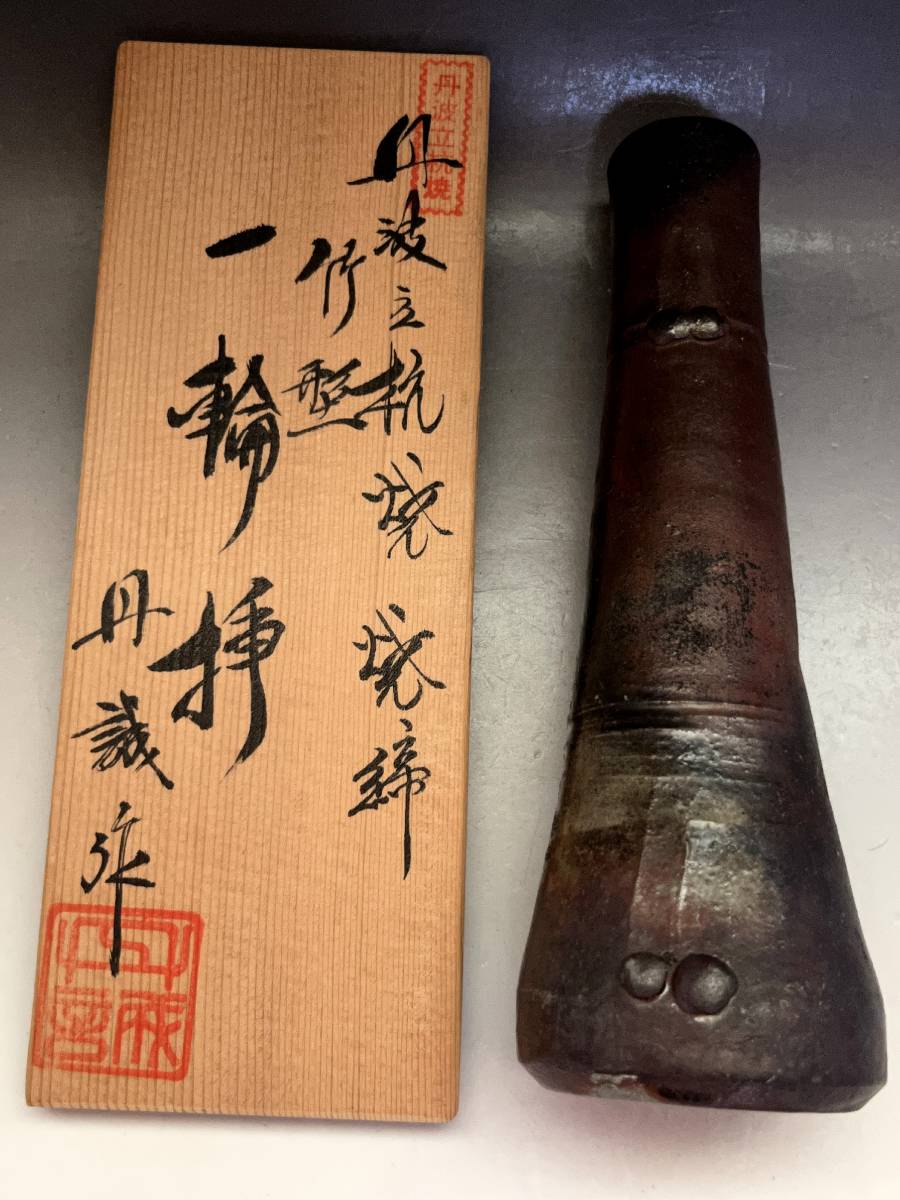 丹波立杭焼
丹波立杭焼 焼締
竹型
一輪挿
丹誠作